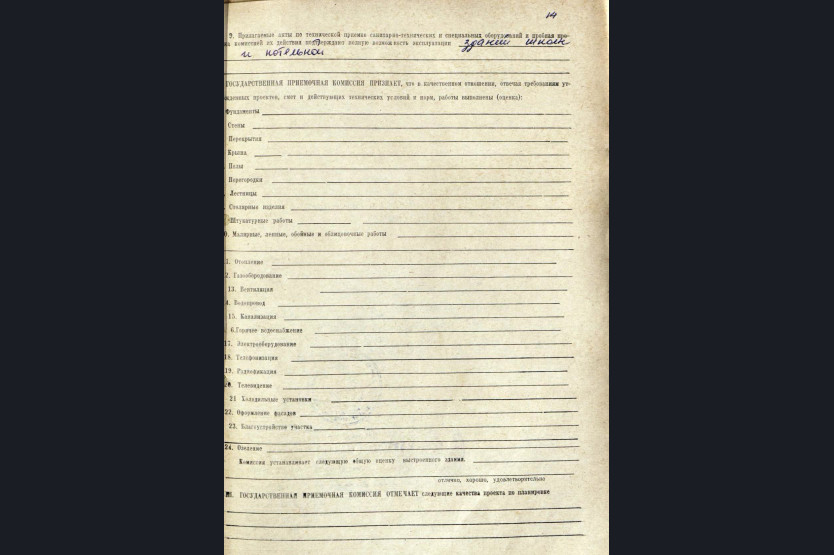 14
9. Прилагаемые акты по технической приемке санитарно-технических и специальных оборудований и пробная про-
ка комиссией их действия подтверждают полную возможность эксплуатации здания школы
и котельной
ГОСУДАРСТВЕННАЯ ПРИЕМОЧНАЯ КОМИССИЯ ПРИЗНАЕТ, что в качественном отношении, отвечая требованиям ут-
жденных проектов, смет и действующих технических условий и норм, работы выполнены (оценка):
Фундаменты
Стены
Перекрытия
Крыша
Полы
Перегородки
Лестницы
Столярные изделия
Штукатурные работы
0. Малярные, лепные, обойные и облицовочные работы
1. Отопление
2. Газооборудование
13. Вентиляция
4. Водопровод
15. Канализация
6.Горячее водоснабжение
17. Электрооборудование
18. Телефонизация
19. Радиофикация
20. Телевидение
21 Холодильные установки
22. Оформление фасадов
23. Благоустройство участка
24. Озеленение
Комиссия устанавливает следующую общую оценку выстроенного здания.
отлично, хорошо, удовлетворительно
III. ГОСУДАРСТВЕННАЯ ПРИЕМОЧНАЯ КОМИССИЯ ОТМЕЧАЕТ следующие качества проекта по планировке